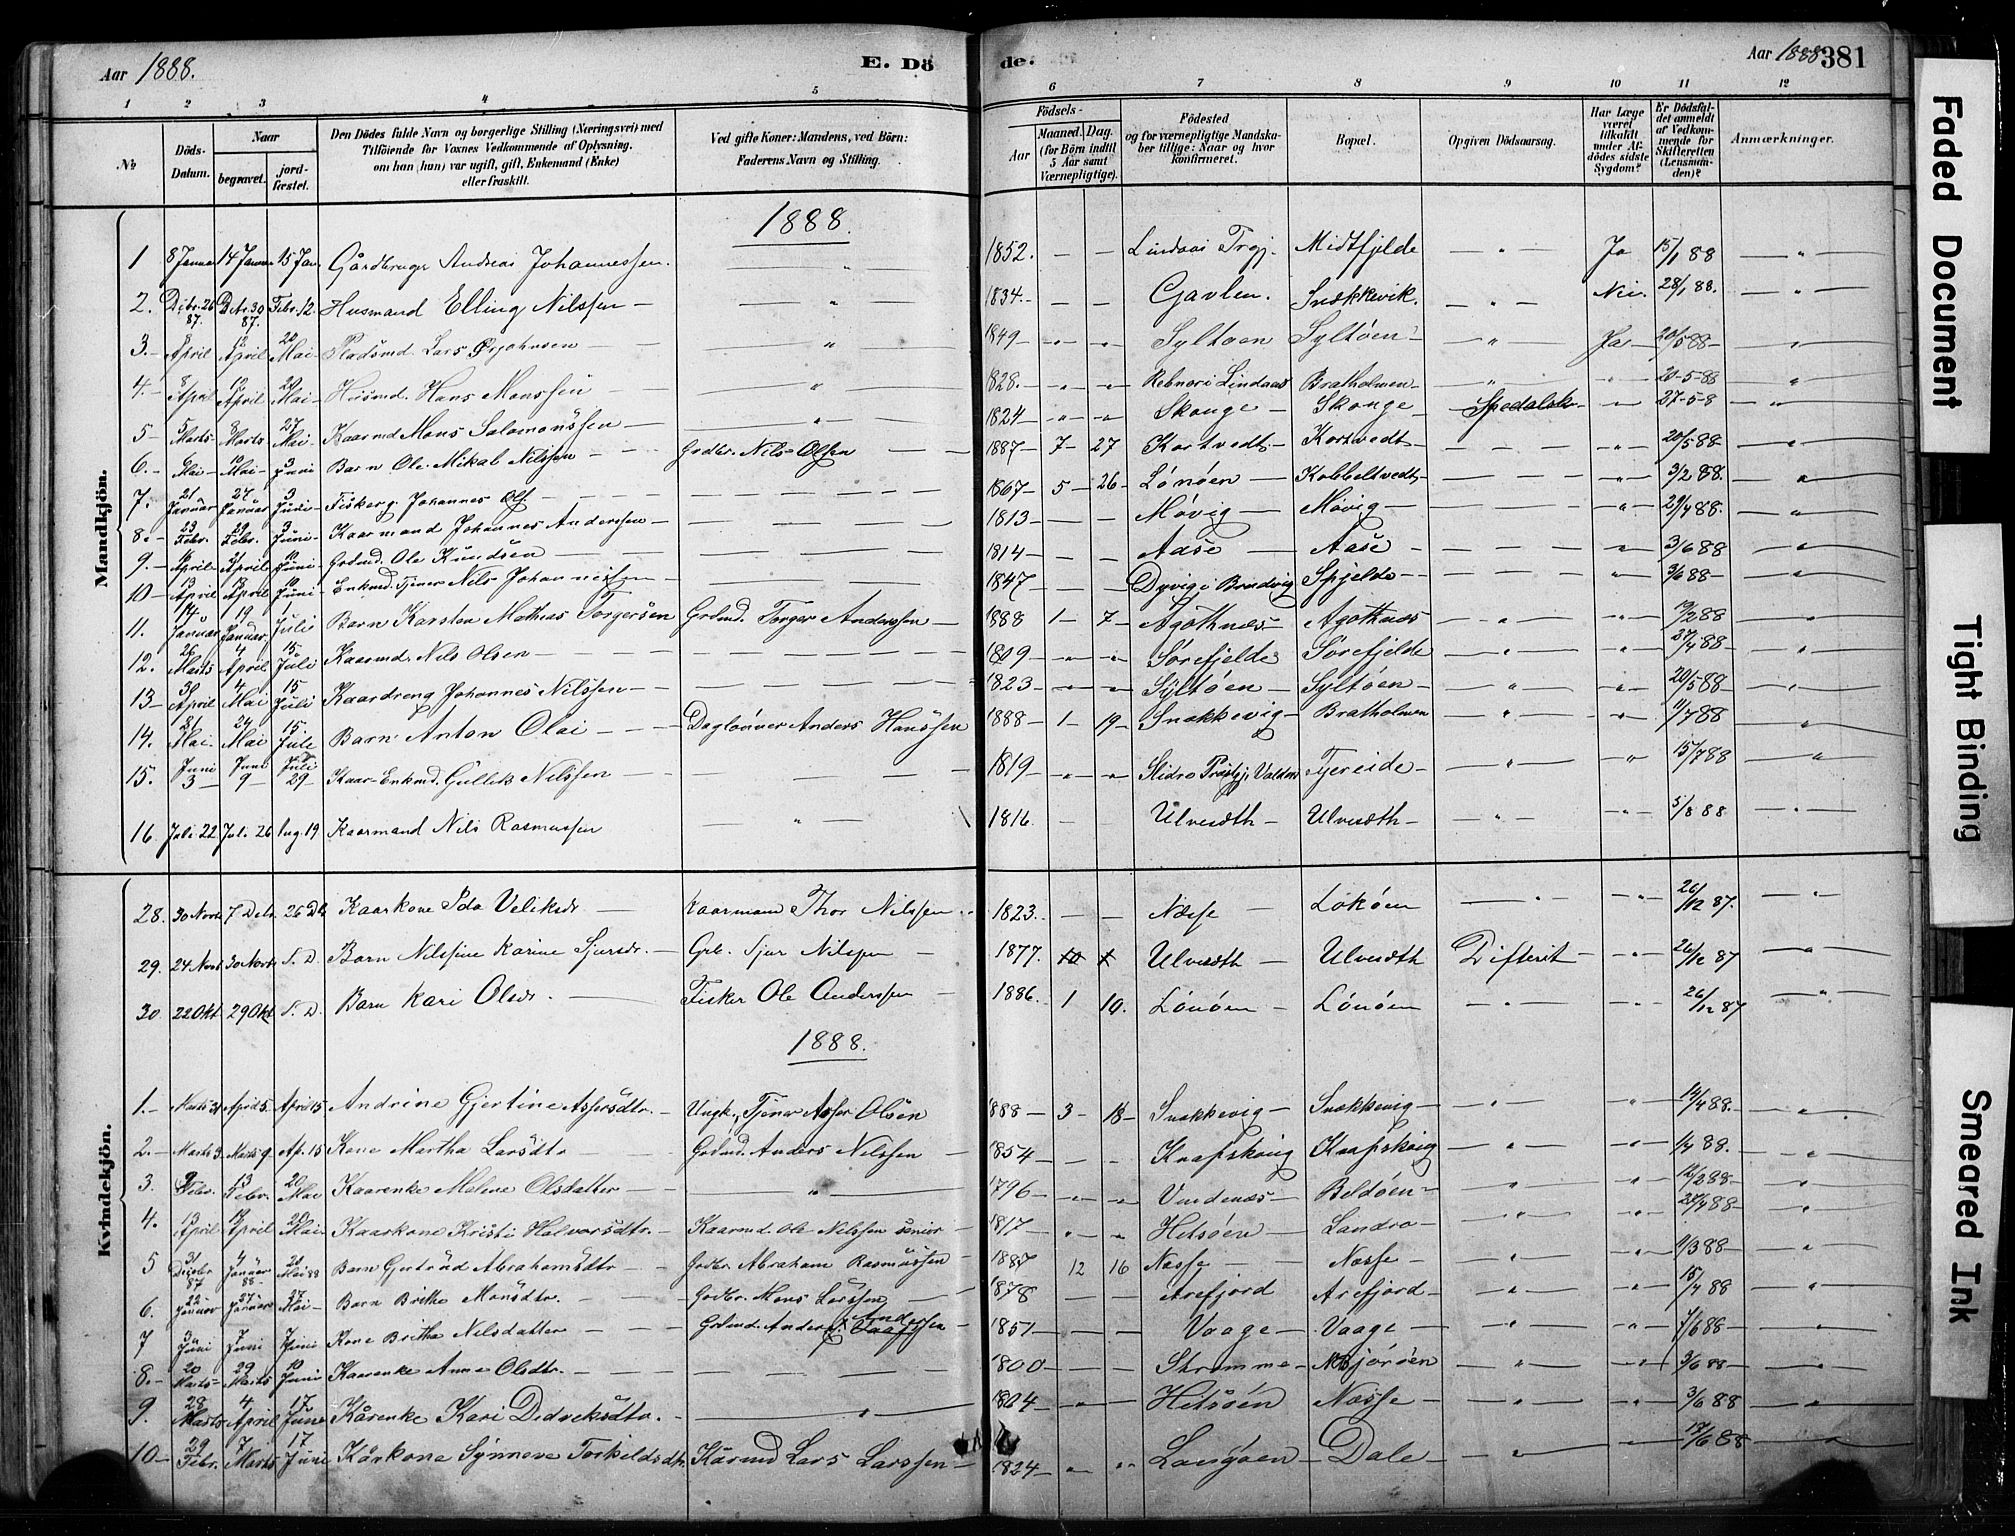 Aar 1888.
E. Dö
de.
Aar 1888
381
1 2 3 4 5 6 7 8 9 10 11 12
№
Döds-Datum.
Naar
begravet.
jordfæstet.
Den Dödes fulde Navn og borgerlige Stilling (Næringsvei) med
Tilföiende for Voxnes Vedkommende af Oplysning,
om han (hun) var ugift, gift, Enkemand (Enke)
eller fraskilt.
Ved gifte Koner: Mandens, ved Börn:
Faderens Navn og Stilling.
Födsels-
Aar
Maaned. Dag.
(for Börn indtil
5 Aar samt
Værnepligtige).
Födested
og for værnepligtige Mandskaber tillige: Naar og hvor
konfirmeret.
Bopæl.
Opgiven Dödsaarsag.
Har Læge været tilkaldt under Afdödes sidste Sygdom?
Er Dödsfaldet anmeldt af Vedkommende for Skifteretten (Lensmanden)?
Anmærkninger.
Mandkjön.
1888.
1 8 Januar 14 Januar 15 Jan Gårdbruger Andreas Johannessen. " 1852. — — Lindaas Prgj. Midtfjelde " Ja 15/1 88 "
2. Dcbr. 26 87. Dcbr. 30 87. Febr. 12. Husmand Elling Nilssen — " 1834. — — Gavlen. Snekkevik. " Nei. 28/1 88. "
3. April 12 April 20 Mai Pladsmd. Lars Ørjohnsen — " 1849 " " Syltøen Syltøen " Ja 20/5 88 "
4. 8 April 12 April 20 Mai Husmd. Hans Monssen " 1828. " " Lindaas Bratholmen " " 20-5-88 "
5 5 Marts 8 Marts 27 Mai Kaarmd Mons Salomonssen — " 1824 " " Skonge Skonge Spedalsk " 27-5-8 "
6. 6 Mai 10 Mai 3 Juni Barn Ole Mikal Nilssen — Grdbr. Nils Olsen 1887 7 27 Kortvedt Kortvedt — " 20/5 88 "
7. 21 Januar 24 Januar 3 Juni Fiskerg. Johannes Ols. 1867 5 26 Lønøen Kobbeltvedt " 3/2 88. "
8. 23 Febr. 29 Febr. 3 Juni Kaarmand Johannes Anderssen — 1813 — — Møvig Møvig " 29/4 88. "
9. 16 April 21 April 10 Juni Grdmd. Ole Knudsen 1814 — — Aase Aase " 3/6 88 "
10 13 April 19 April 10 Juni Enkmd. Tjener Nils Johannissen 1847 — — Dyvig i Brudvig Spjelde " 3/6 88 "
11. 14 Januar 19 Januar 1 Juli Barn Karsten Mathias Torgersen Grdmd. Torger Anderssen — 1888 1 7 Agothnæs Agothnæs " " 19/2 88 "
12. 26 Marts 4 April 15 Juli Kaarmd. Nils Olsen — 1809 " " Sørefjelde Sørefjelde " " 27/4 88 "
13 30 April 4 Mai 15 Juli Kaardreng Johannes Nilssen 1823 " " Syltøen Syltøen " " 20/5 88 "
14. 21 Mai 24 Mai 15 Juli Barn Anton Olai — Daglønner Anders Hanssen 1888 1 19 Snekkevig Bratholmen " " 11/7 88 "
15. Juni 3 Juni 9 Juli 29 Kaar-Enkmd. Gullik Nilssen " 1819 " " Slidre Prstgj. Valdrs Tjereide " " 15/7 88 "
16. Juli 22 Juli 26 Aug. 19 Kaarmand Nils Rasmussen " 1816. — — Ulvesæth Ulvesæth " " 5/8 88 "
Kvindekjön.
28. 30 Novbr 7 Decbr 26 Db Kaarkone Ida Veliksdr Kaarmand Thor Nilssen 1823. — — Nesse Løkøen " " 26/12 87. "
29. 24 Novbr 30 Novbr S. D. Barn Nilsine Karine Sjursdr. — Grb. Sjur Nilssen 1877. 10 1 Ulvesæth Ulvesæth Difterit " 26/12 87 "
30 22 Okt 29 Okt S. D. Barn Kari Olsdr. — Fisker Ole Anderssen 1886. 1 10. Lønøen Lønøen " " 26/12 87 "
1888.
1. Marts 31 April 5. April 15 Andrine Gjertine Assersdtr. Ungk., Tjener Asser Olsen 1888 3 18 Snekkevig Snekkevig " " 14/4 88. "
2. Marts 3 Marts 9 Ap. 15 Kone Martha Larsdtr Grdmd. Anders Nilssen 1854 — — Knapskoug Knapskoug " " 1/4 88. "
3. 9 Febr. 13 Febr. 20 Mai Kaarenke Malene Olsdatter " 1796 " " Vindenæs Beldøen " " 14/2 88 "
4. 13 April 19 April 20 Mai Kaarkone Kristi Halvorsdtr. Kaarmd. Ole Nilssen senior 1817 " " Hitsøen Landro " " 27/4 88 "
5 31 Decbr 87 4 Januar 88 20 Mai 88 Barn Gertrud Abrahamsdtr Grdbr. Abraham Rasmussen 1887 12 16 Nesse Nesse " " 9/3 88 "
6. 22 Januar 27 Januar 27 Mai Barn Brithe Monsdtr. Grdbr. Mons Larssen 1878 — — Arefjord Arefjord " " 15/4 88 "
7 3 Juni 7 Juni 7 Juni Kone Britha Nilsdatter Grdmd. Anders Anderssen 1851 — — Vaage Vaage " " 7/6 88 "
8. 20 Marts 29 Marts 10 Juni Kaarenke Anne Olsdtr. 1800 — — Strømme Bjørøen " " 3/6 88 "
9. 28 Marts 4 April 17 Juni Kårenke Kari Didriksdtr. " 1804 " Hitsøen Nesse " " 3/6 88 "
10 29 Febr. 7 Marts 17 Juni Kårkone Synneve Torkildsdtr Kårmd Lars Larssen 1824 " " Langøen Dale " " 17/6 88 "
Faded Document
Tight Binding
Smeared Ink